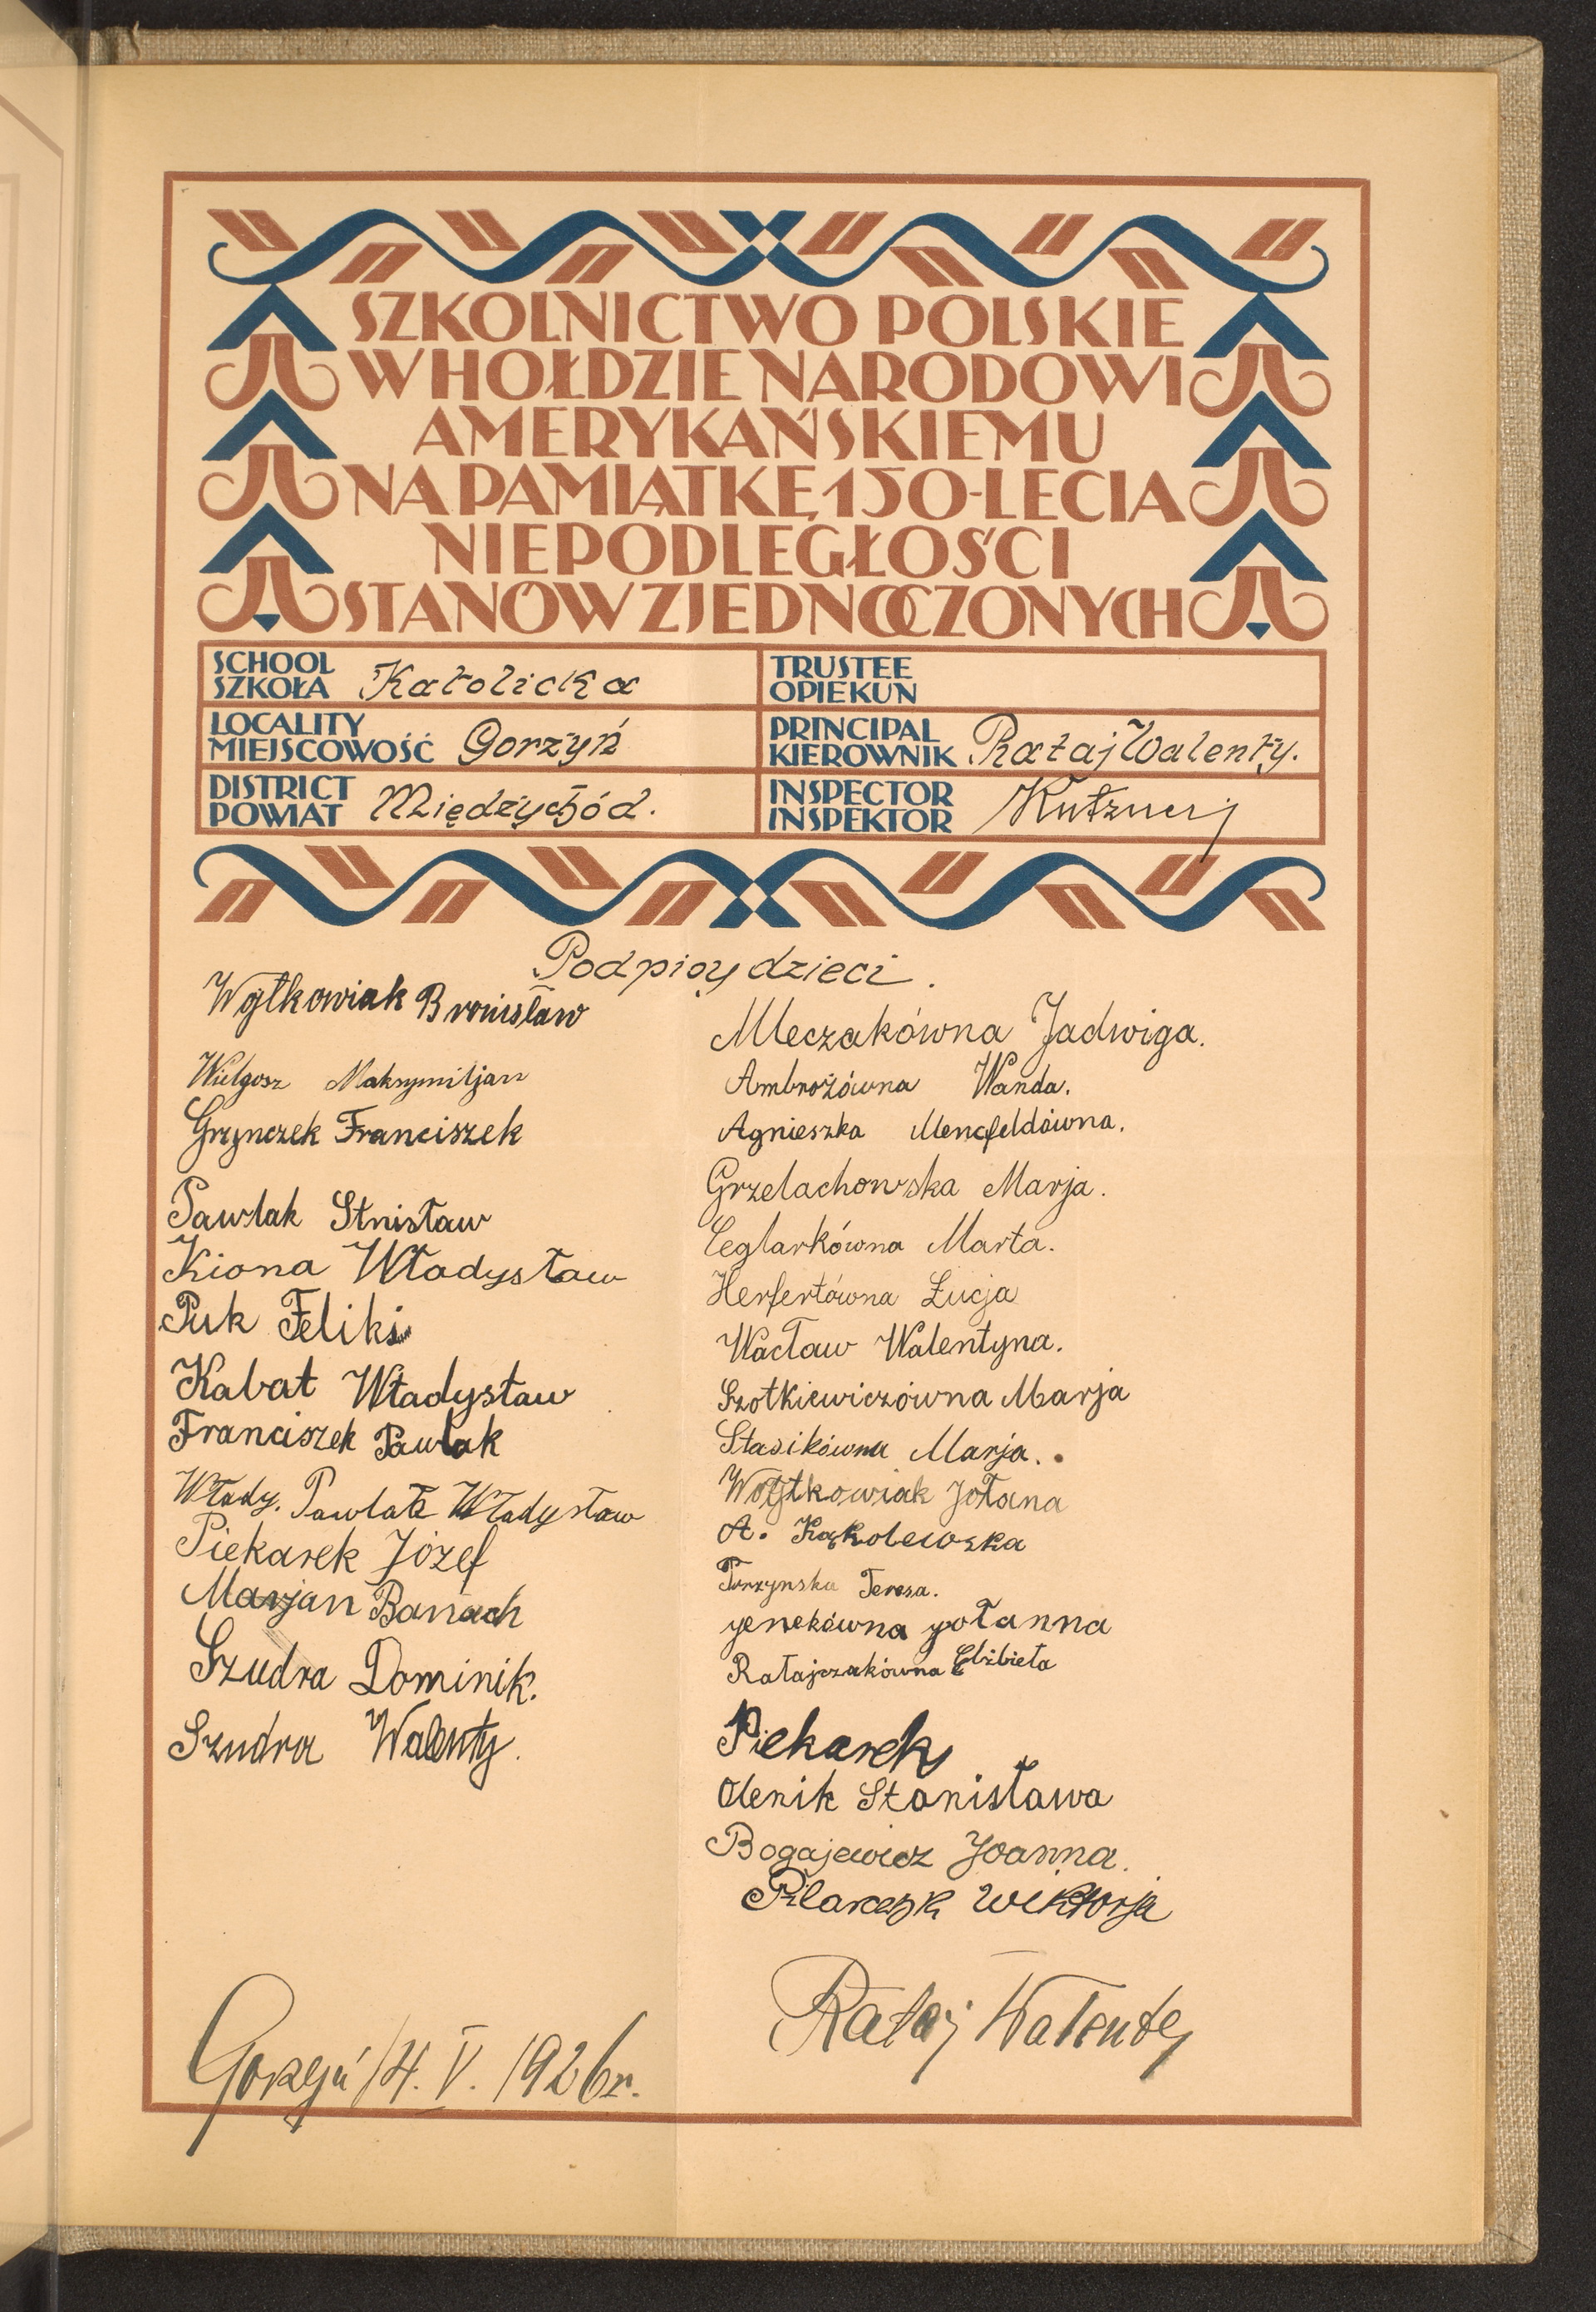 SZKOLNICTWO POLSKIE
W HOŁDZIE NARODOWI
AMERYKAŃSKIEMU
NA PAMIĄTKĘ 150-LECIA
NIEPODLEGŁOŚCI
STANÓW ZJEDNOCZONYCH
SCHOOL
SZKOŁA Katolicka
TRUSTEE
OPIEKUN
LOCALITY
MIEJSCOWOŚĆ Gorzyń
PRINCIPAL
KIEROWNIK Rataj Walenty.
DISTRICT
POWIAT Międzychód.
INSPECTOR
INSPEKTOR
Podpisy dzieci.
Wojtkowiak Bronisław
Wielgosz Maksymiljan
Grzynczek Franciszek
Pawlak Stnisław
Kiona Władysław
Puk Feliks
Kabat Władysław
Franciszek Pawlak
Włady. Pawlak Władysław
Piekarek Józef
Marjan Banach
Szudra Dominik.
Szudra Walenty.
Mleczakówna Jadwiga.
Ambrożówna Wanda.
Agnieszka Mencfeldówna.
Grzelachowska Marja.
Ceglarkówna Marta.
Herfertówna Łucja
Wacław Walentyna.
Szotkiewiczówna Marja
Stasikówna Marja.
Wojtkowiak Jołana
A. Kąkolewska
Teresa.
yenekówna yołanna
Ratajczakówna Elżbieta
Piekarek
Olenik Stanisława
Bogajewicz Joanna.
Pilarczyk Wiktorja
Rataj Walenty
Gorzyń 14. V. 1926 r.